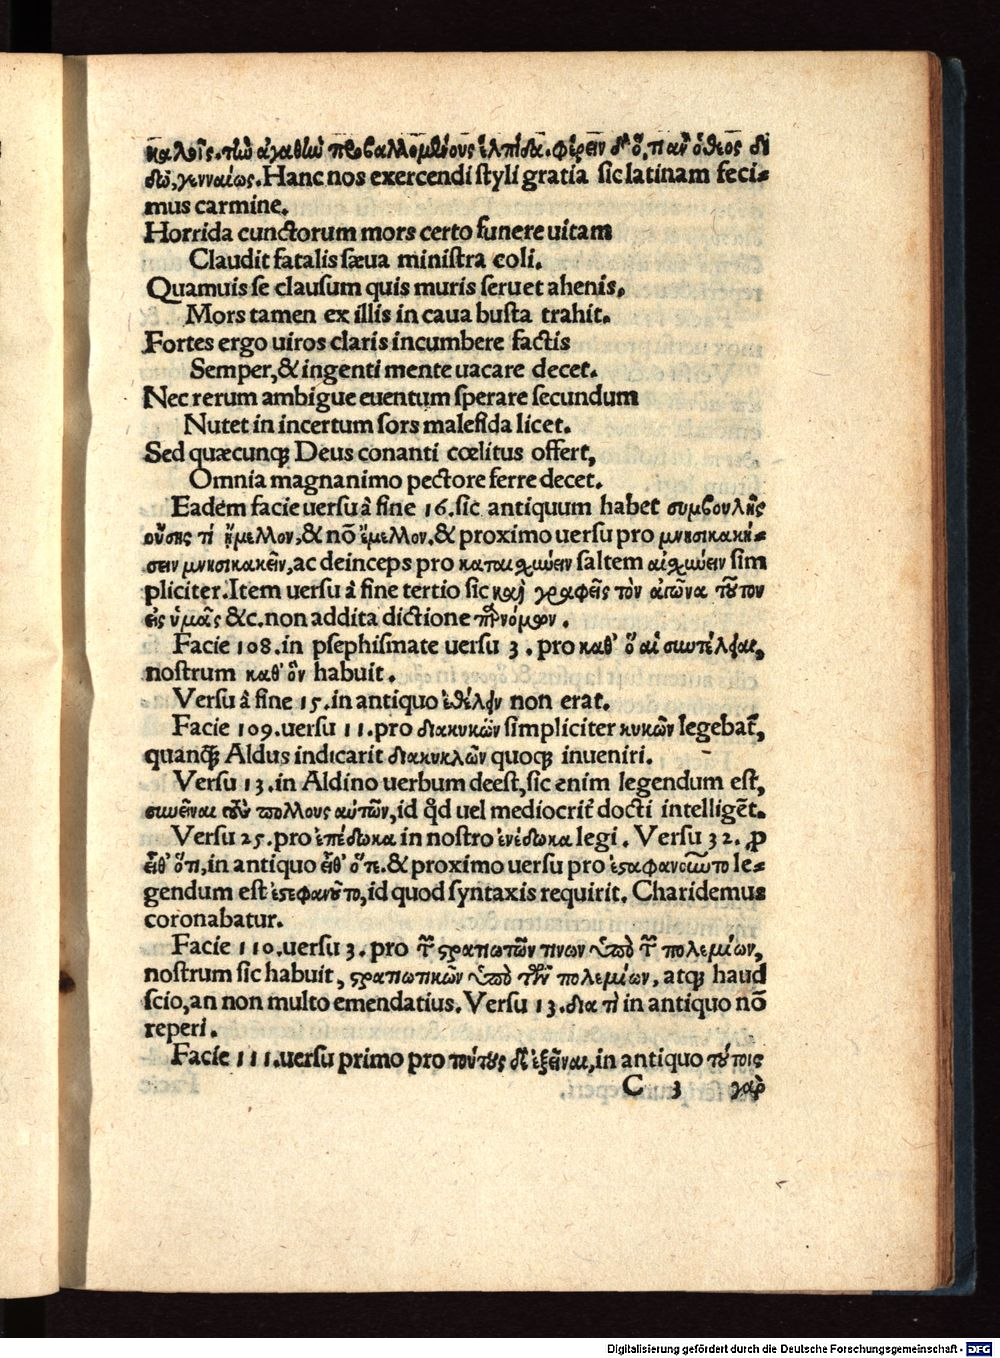 καλοῖς, τὴν ἀγαθὴν προβαλλομένους ἐλπίδα. φέρειν δ' ὅ,τι ἂν ὁ θεὸς δι
δῷ, γενναίως. Hanc nos exercendi styli gratia sic latinam feci-
mus carmine.
Horrida cunctorum mors certo funere uitam
Claudit fatalis sæua ministra coli.
Quamuis se clausum quis muris seruet ahenis,
Mors tamen ex illis in caua busta trahit.
Fortes ergo uiros claris incumbere factis
Semper, & ingenti mente uacare decet.
Nec rerum ambigue euentum sperare secundum
Nutet in incertum sors malefida licet.
Sed quæcunq; Deus conanti cœlitus offert,
Omnia magnanimo pectore ferre decet.
Eadem facie uersu â fine 16. sic antiquum habet συμβουλῆς
οὔσης τί ἤμελλον, & nō ἔμελλον. & proximo uersu pro μνησικακή-
σειν μνησικακεῖν, ac deinceps pro καταισχύνειν saltem αἰσχύνειν sim
pliciter. Item uersu â fine tertio sic καὶ γραφεῖς τὸν ἀγῶνα τοῦτον
εἰς ὑμᾶς &c. non addita dictione
Facie 108. in psephismate uersu 3. pro καθ' ὅ αἱ συντέλειαι,
nostrum καθ' ὃν habuit.
Versu â fine 15. in antiquo ἐθέλειν non erat.
Facie 109. uersu 11. pro διακυκῶν simpliciter κυκῶν legebat̄,
quanq̄ Aldus indicarit διακυκλῶν quoq; inueniri.
Versu 13. in Aldino uerbum deest, sic enim legendum est,
συνεῖναι τοὺς πολλοὺς αὐτῶν, id q̄d uel mediocrit̄ docti intelligēt.
Versu 25. pro ἐπέδωκα in nostro ἐνέδωκα legi. Versu 32. ꝓ
εἶθ' ὅτι, in antiquo εἶθ' ὅτε. & proximo uersu pro ἐστεφανοῦντο le-
gendum est ἐστεφανοῦτο, id quod syntaxis requirit. Charidemus
coronabatur.
Facie 110. uersu 3. pro τῶν στρατιωτῶν τινων ὑπὸ τῶν πολεμίων,
nostrum sic habuit, στρατιωτικῶν ὑπὸ τῶν πολεμίων, atq; haud
scio, an non multo emendatius. Versu 13. δια τί in antiquo nō
reperi.
Facie 111. uersu primo pro τούτους δὲ ἐξεῖναι, in antiquo τούτοις
C 3 γὰρ
Digitalisierung gefördert durch die Deutsche Forschungsgemeinschaft - DFG